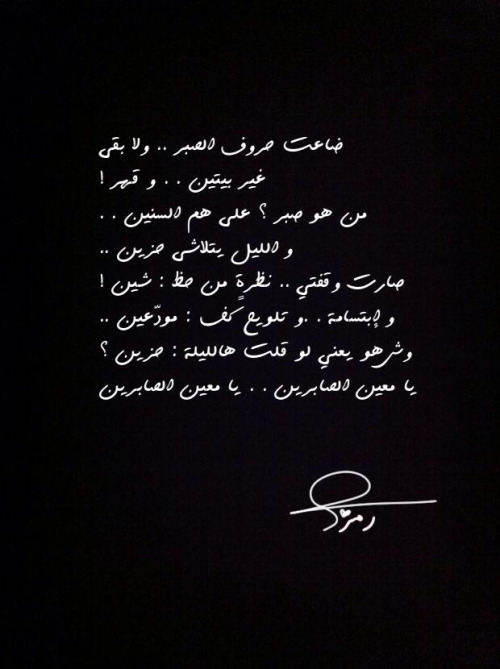 ضاعت حروف الصبر .. ولا بقى
غير بيتين . . و قهر !
من هو صبر ؟ على هم السنين . .
و الليل يتلاشى حزين ..
صارت وقفتي .. نظرةٍ من حظ : شين !
و إبتسامة . .و تلويح كف : مودّعين ..
وش هو يعني لو قلت هالليلة : حزين ؟
يا معين الصابرين . . يا معين الصابرين